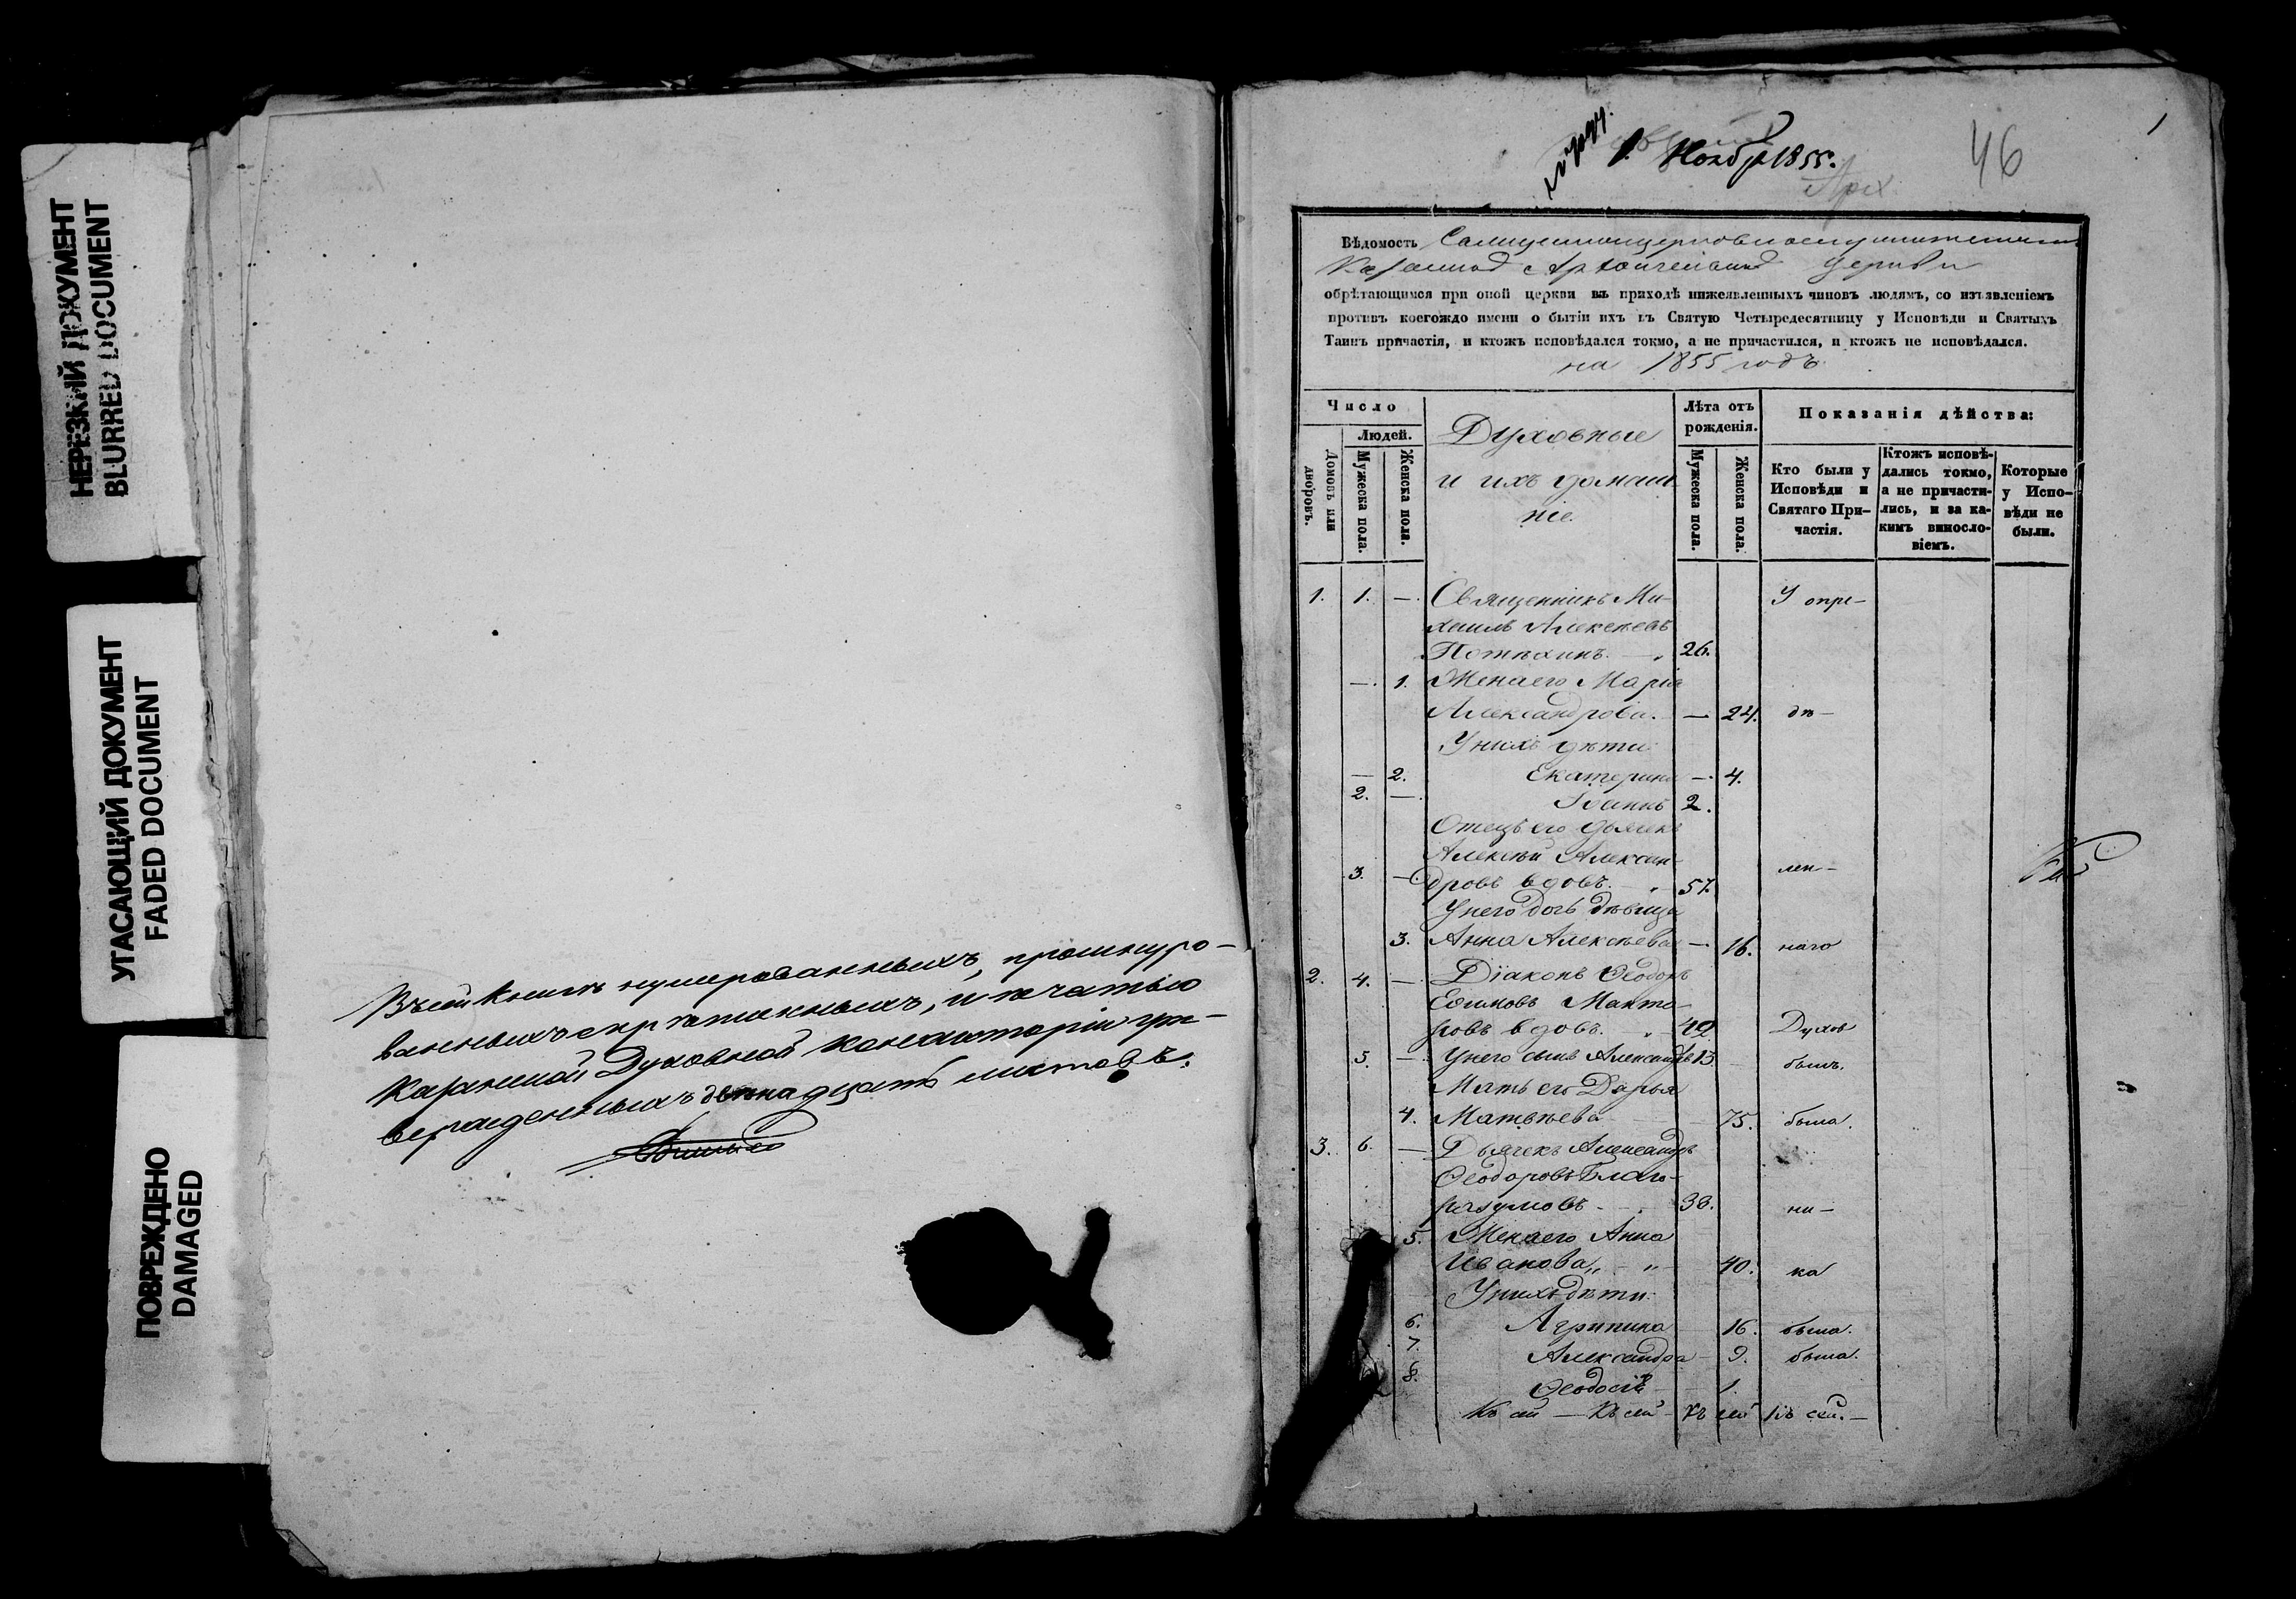 НЕРЕЗКИЙ ДОКУМЕНТ
BLURRED DOCUMENT
УГАСАЮЩИЙ ДОКУМЕНТ
FADED DOCUMENT
ПОВРЕЖДЕНО
DAMAGED
Въ сей книгѣ нумерованныхъ, прошнуро-
ванныхъ скрѣпленныхъ, и печатью
Казанской Духовной Консисторіи
двѣнадцать листовъ.
1. Ноябр 1855.
46
1
Вѣдомость
церкви
обрѣтающимся при оной церкви въ приходѣ нижеявленныхъ чиновъ людямъ, со изъявленіемъ
противъ коегождо имени о бытіи ихъ въ Святую Четыредесятницу у Исповѣди и Святыхъ
Таинъ причастія, и ктожъ исповѣдался токмо, а не причастился, и ктожъ не исповѣдался.
на 1855 годъ
Число
Людей.
Домовъ или дворовъ.
Мужеска пола.
Женска пола.
Духовные
и ихъ домаш
ніе.
Лѣта отъ рожденія.
Мужеска пола.
Женска пола.
Показанія дѣйства:
Кто были у Исповѣди и Святаго При-частія.
Ктожъ исповѣ-дались токмо, а не причасти-лись, и за ка-кимъ винословіемъ.
Которые у Испо-вѣди не были.
1. 1. —. Священникъ Ми- У опре-
хаилъ Алексѣевъ
Потѣхинъ. — 26.
—. 1. Жена его Марія
Александрова. — 24. дѣ-
У нихъ дѣти:
— 2. Екатерина —. 4.
2. —. Іоаннъ 2.
Отецъ его дьячекъ
Алексѣй Алексан-
3. —. дровъ вдовъ. — 57. лен-
У него дочь дѣвица
3. Анна Алексѣева — 16. наго
2. 4. — Діаконъ Ѳеодоръ
Ефимовъ
ровъ вдовъ. 49. Духов
5. — У него сынъ Александръ 13. былъ.
Мать его Дарья
4. Матвѣева 75. была.
3. 6. — Дьячекъ Александръ
Ѳеодоровъ Благо-
разумовъ. - 38. ни-
5. Жена его Анна
Иванова „ - „ 40. ка
У нихъ дѣти:
6. Агрипина 16. была.
7. Александра 9. была.
8. Ѳеодосія 1.
Къ сей — Къ сей Къ сей Къ сей. —